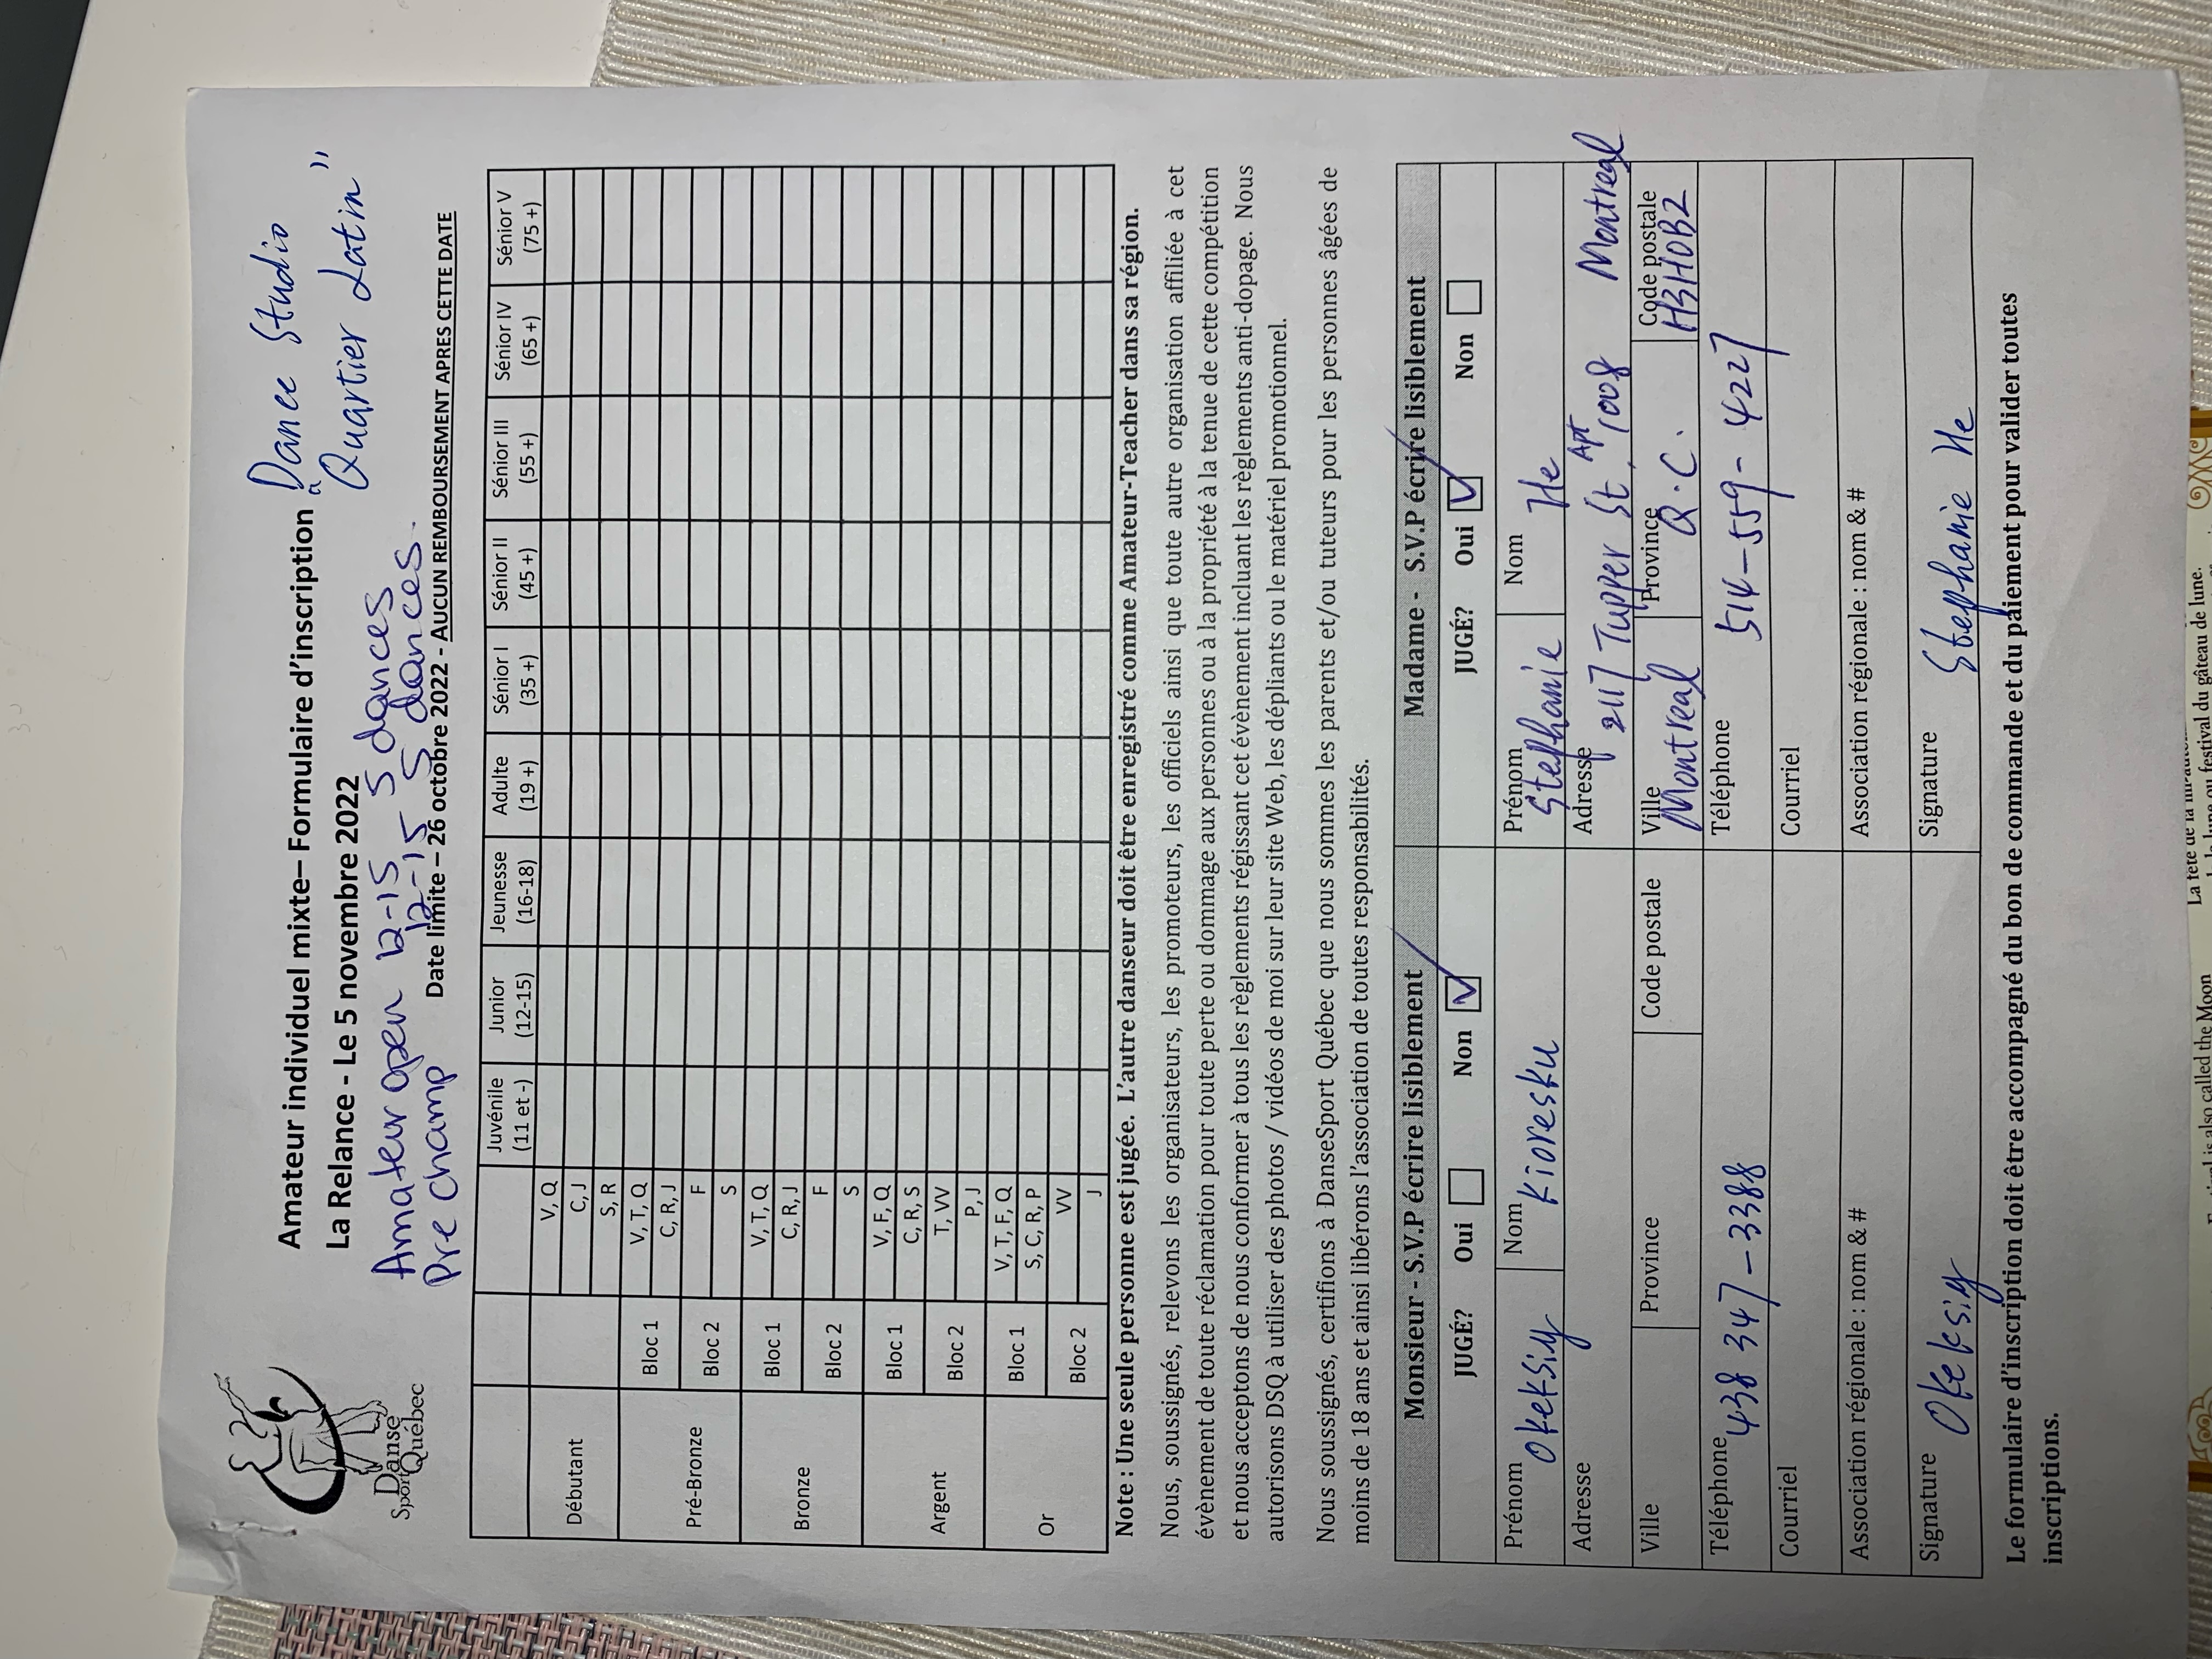 Danse
Sport Québec
Amateur individuel mixte– Formulaire d’inscription
Dance Studio
La Relance - Le 5 novembre 2022
"Quartier Latin"
Amateur open 12-15 5 dances
12-15 5 dances.
Pre champ
Date limite – 26 octobre 2022 - AUCUN REMBOURSEMENT APRES CETTE DATE
Juvénile (11 et -) Junior (12-15) Jeunesse (16-18) Adulte (19 +) Sénior I (35 +) Sénior II (45 +) Sénior III (55 +) Sénior IV (65 +) Sénior V (75 +)
Débutant
V, Q
C, J
S, R
Pré-Bronze
Bloc 1
V, T, Q
C, R, J
Bloc 2
F
S
Bronze
Bloc 1
V, T, Q
C, R, J
Bloc 2
F
S
Argent
Bloc 1
V, F, Q
C, R, S
Bloc 2
T, VV
P, J
Or
Bloc 1
V, T, F, Q
S, C, R, P
Bloc 2
VV
J
Note : Une seule personne est jugée. L’autre danseur doit être enregistré comme Amateur-Teacher dans sa région.
Nous, soussignés, relevons les organisateurs, les promoteurs, les officiels ainsi que toute autre organisation affiliée à cet
évènement de toute réclamation pour toute perte ou dommage aux personnes ou à la propriété à la tenue de cette compétition
et nous acceptons de nous conformer à tous les règlements régissant cet évènement incluant les règlements anti-dopage. Nous
autorisons DSQ à utiliser des photos / vidéos de moi sur leur site Web, les dépliants ou le matériel promotionnel.
Nous soussignés, certifions à DanseSport Québec que nous sommes les parents et/ou tuteurs pour les personnes âgées de
moins de 18 ans et ainsi libérons l’association de toutes responsabilités.
Monsieur - S.V.P écrire lisiblement
JUGÉ? Oui Non
Prénom Okeksiy Nom Kioresku
Adresse
Ville Province Code postale
Téléphone 438 347-3388
Courriel
Association régionale : nom & #
Signature Okeksiy
Madame - S.V.P écrire lisiblement
JUGÉ? Oui Non
Prénom Stephanie Nom He
Adresse 2117 Tupper St. Apt 1008 Montreal
Ville Montreal Province Q.C. Code postale H3H0B2
Téléphone 514-559-4227
Courriel
Association régionale : nom & #
Signature Stephanie He
Le formulaire d’inscription doit être accompagné du bon de commande et du paiement pour valider toutes
inscriptions.
is also called the Moon
La fête de la
ou festival du gâteau de lune.